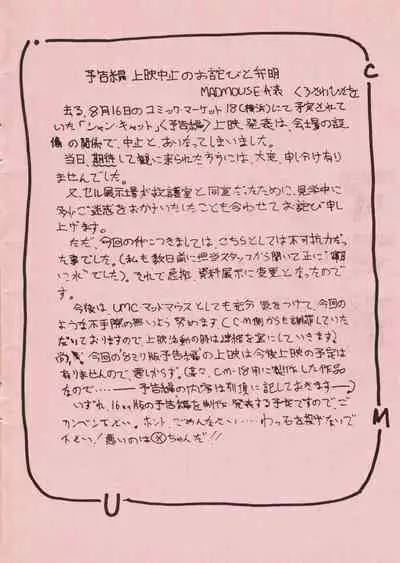 予告編 上映中止のお詫びと弁明
MADMOUSE代表 くろさわひさお
去る、8月16日のコミック・マーケット18(横浜)にて予定されて
いた「シャン・キャット」〈予告編〉上映発表は、会場の設
備の関係で、中止と、あいなってしまいました。
当日、期待して観に来られた方々には、大変、申し訳あり
ませんでした。
又、セル展示場が救護室と同室だったために、見学中に
多少ご迷惑をおかけいたしたことも合わせてお詫び申し
上げます。
ただ、今回の件につきましては、こちらとしては不可抗力だっ
た事でした。(私も数日前に担当スタッフから聞いて正に"寝耳
に水"でした)。それで急拠、資料展示に変更となったので
す。
今後は、UMC・マッドマウスとしても充分 気をつけて、今回の
ような不手際の無いよう努めます(CM側からも謝罪していた
だいておりますので、上映活動の時は連絡を密にしていきます)
尚、今回の8ミリ版予告編の上映は今後上映の予定は
ありませんので、悪しからず。(CM-18用に製作した作品
なので……――予告編の内容は別項に記しておきます――)
いずれ、16㎜版の予告編を制作 発表する予定ですので、ご
カンベン下さい。ホント、ごめんなさい……わっ石を投げないで
下さい!悪いのは ちゃんだ!!
C
M
U